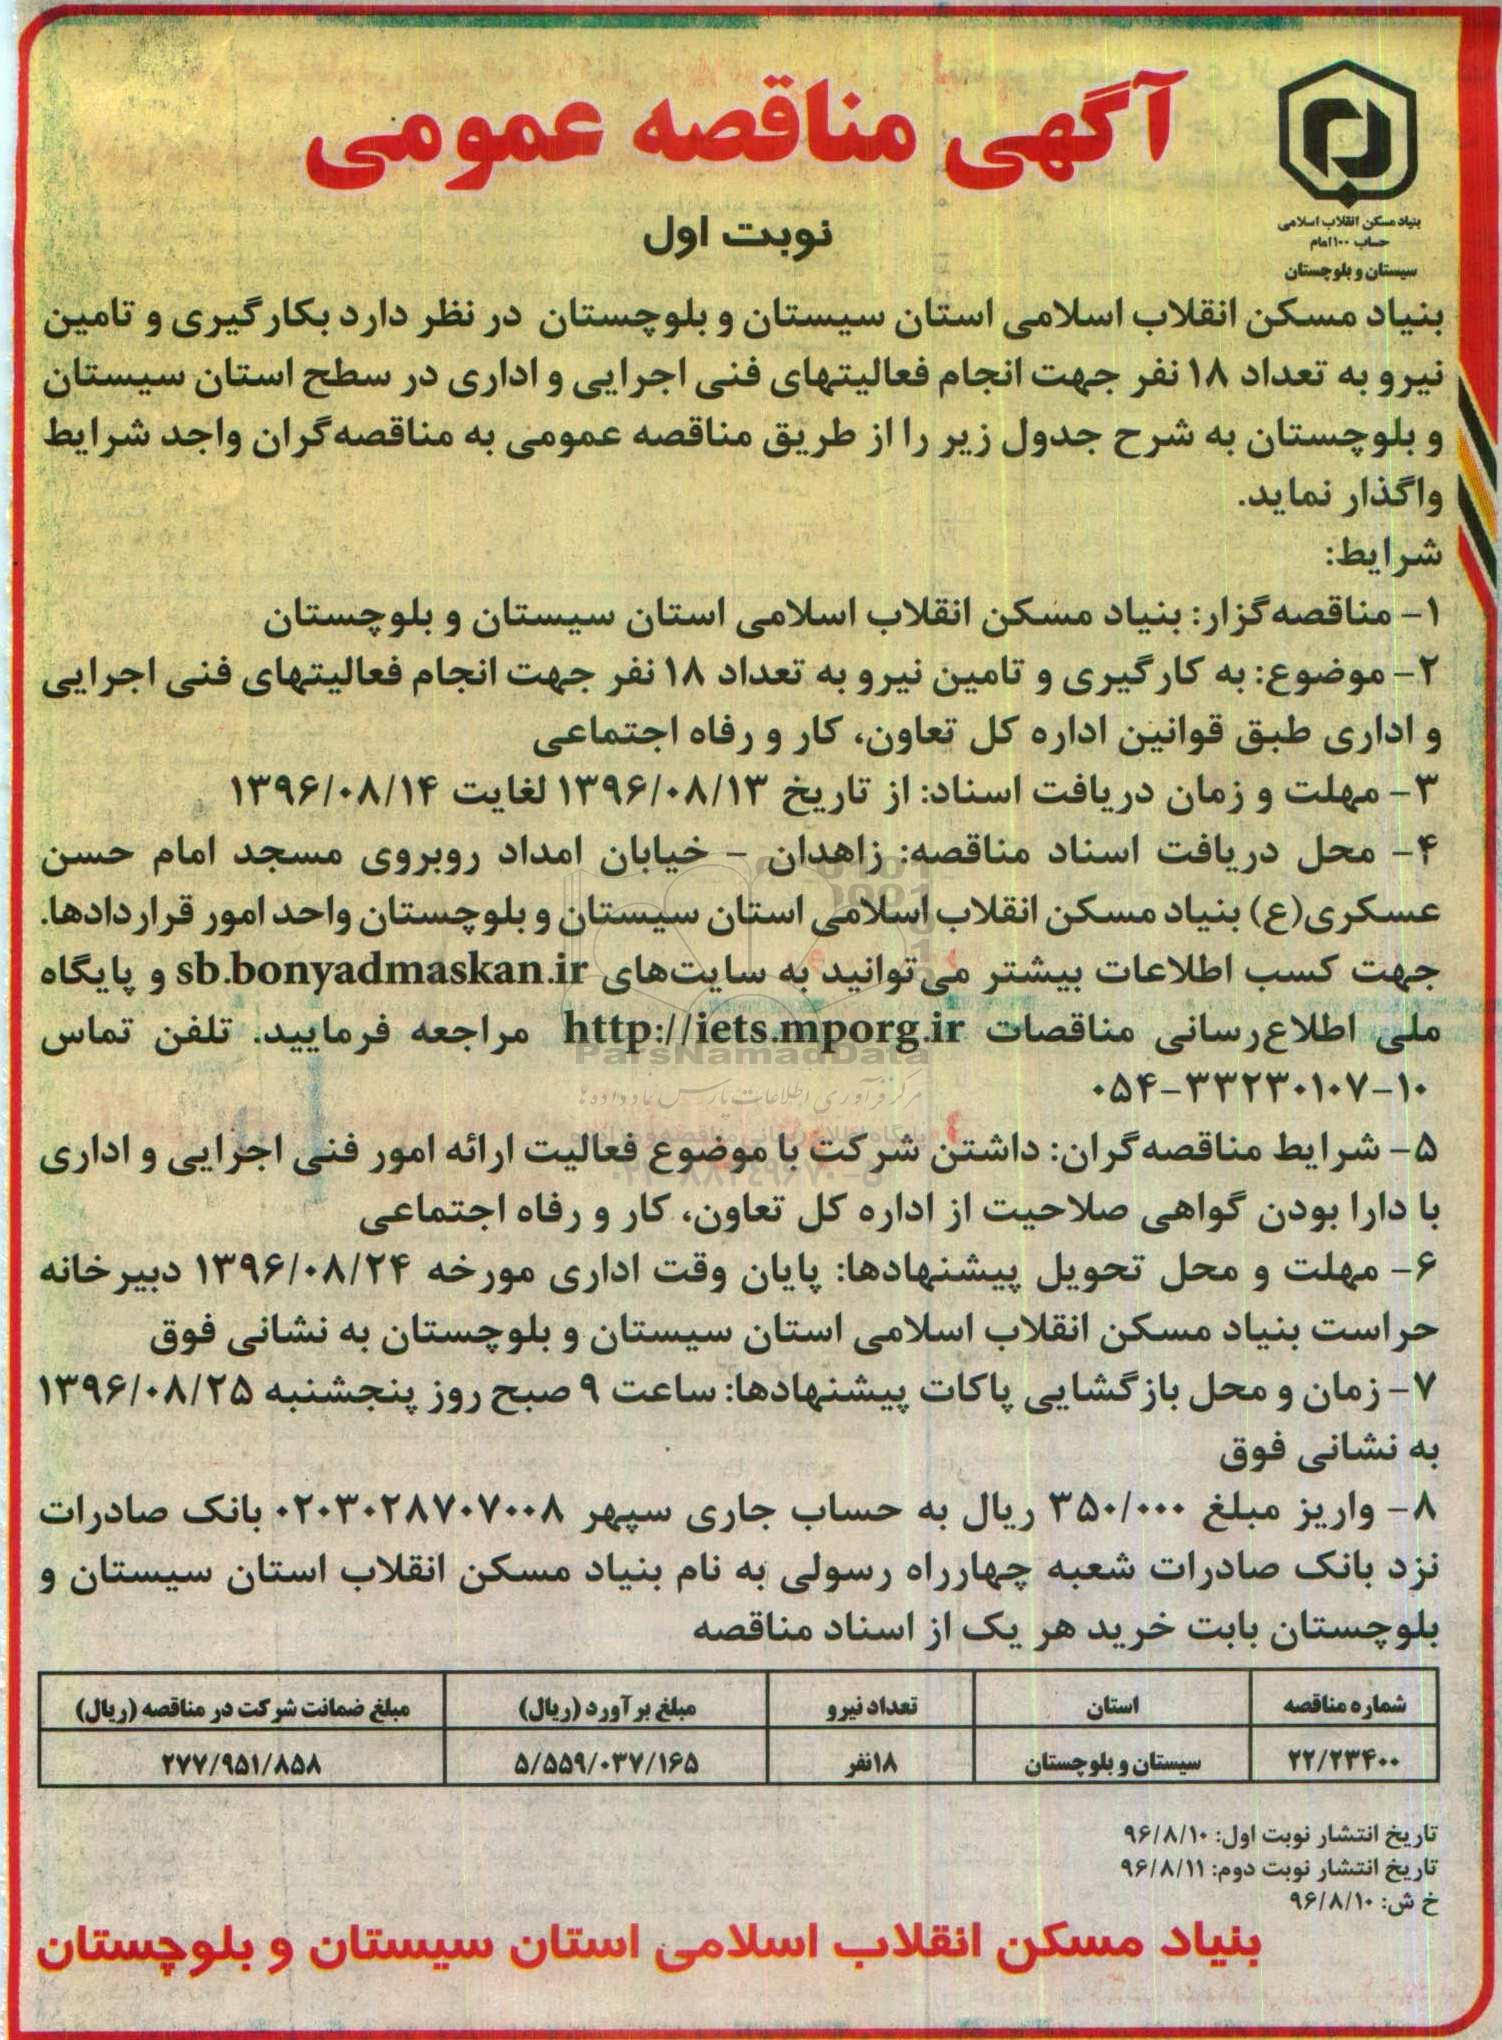 آگهی مناقصه عمومی
بنیاد مسکن انقلاب اسلامی
حساب ۱۰۰ امام
سیستان و بلوچستان
نوبت اول
بنیاد مسکن انقلاب اسلامی استان سیستان و بلوچستان در نظر دارد بکارگیری و تامین
نیرو به تعداد ۱۸ نفر جهت انجام فعالیتهای فنی اجرایی و اداری در سطح استان سیستان
و بلوچستان به شرح جدول زیر را از طریق مناقصه عمومی به مناقصه‌گران واجد شرایط
واگذار نماید.
شرایط:
۱- مناقصه‌گزار: بنیاد مسکن انقلاب اسلامی استان سیستان و بلوچستان
۲- موضوع: به کارگیری و تامین نیرو به تعداد ۱۸ نفر جهت انجام فعالیتهای فنی اجرایی
و اداری طبق قوانین اداره کل تعاون، کار و رفاه اجتماعی
۳- مهلت و زمان دریافت اسناد: از تاریخ ۱۳۹۶/۰۸/۱۳ لغایت ۱۳۹۶/۰۸/۱۴
۴- محل دریافت اسناد مناقصه: زاهدان - خیابان امداد روبروی مسجد امام حسن
عسکری(ع) بنیاد مسکن انقلاب اسلامی استان سیستان و بلوچستان واحد امور قراردادها.
جهت کسب اطلاعات بیشتر می‌توانید به سایت‌های sb.bonyadmaskan.ir و پایگاه
ملی اطلاع‌رسانی مناقصات http://iets.mporg.ir مراجعه فرمایید. تلفن تماس
ParsNamadData
۰۵۴-۳۳۲۳۰۱۰۷-۱۰
مرکز فرآوری اطلاعات پارس نماد داده ها
۵- شرایط مناقصه‌گران: داشتن شرکت با موضوع فعالیت ارائه امور فنی اجرایی و اداری
۰۲۱-۸۸۳۴۹۶۷۰-۵
با دارا بودن گواهی صلاحیت از اداره کل تعاون، کار و رفاه اجتماعی
۶- مهلت و محل تحویل پیشنهادها: پایان وقت اداری مورخه ۱۳۹۶/۰۸/۲۴ دبیرخانه
حراست بنیاد مسکن انقلاب اسلامی استان سیستان و بلوچستان به نشانی فوق
۷- زمان و محل بازگشایی پاکات پیشنهادها: ساعت ۹ صبح روز پنجشنبه ۱۳۹۶/۰۸/۲۵
به نشانی فوق
۸- واریز مبلغ ۳۵۰/۰۰۰ ریال به حساب جاری سپهر ۰۲۰۳۰۲۸۷۰۷۰۰۸ بانک صادرات
نزد بانک صادرات شعبه چهارراه رسولی به نام بنیاد مسکن انقلاب استان سیستان و
بلوچستان بابت خرید هر یک از اسناد مناقصه
شماره مناقصه استان تعداد نیرو مبلغ برآورد (ریال) مبلغ ضمانت شرکت در مناقصه (ریال)
۲۲/۲۳۴۰۰ سیستان و بلوچستان ۱۸نفر ۵/۵۵۹/۰۳۷/۱۶۵ ۲۷۷/۹۵۱/۸۵۸
تاریخ انتشار نوبت اول: ۹۶/۸/۱۰
تاریخ انتشار نوبت دوم: ۹۶/۸/۱۱
خ ش: ۹۶/۸/۱۰
بنیاد مسکن انقلاب اسلامی استان سیستان و بلوچستان